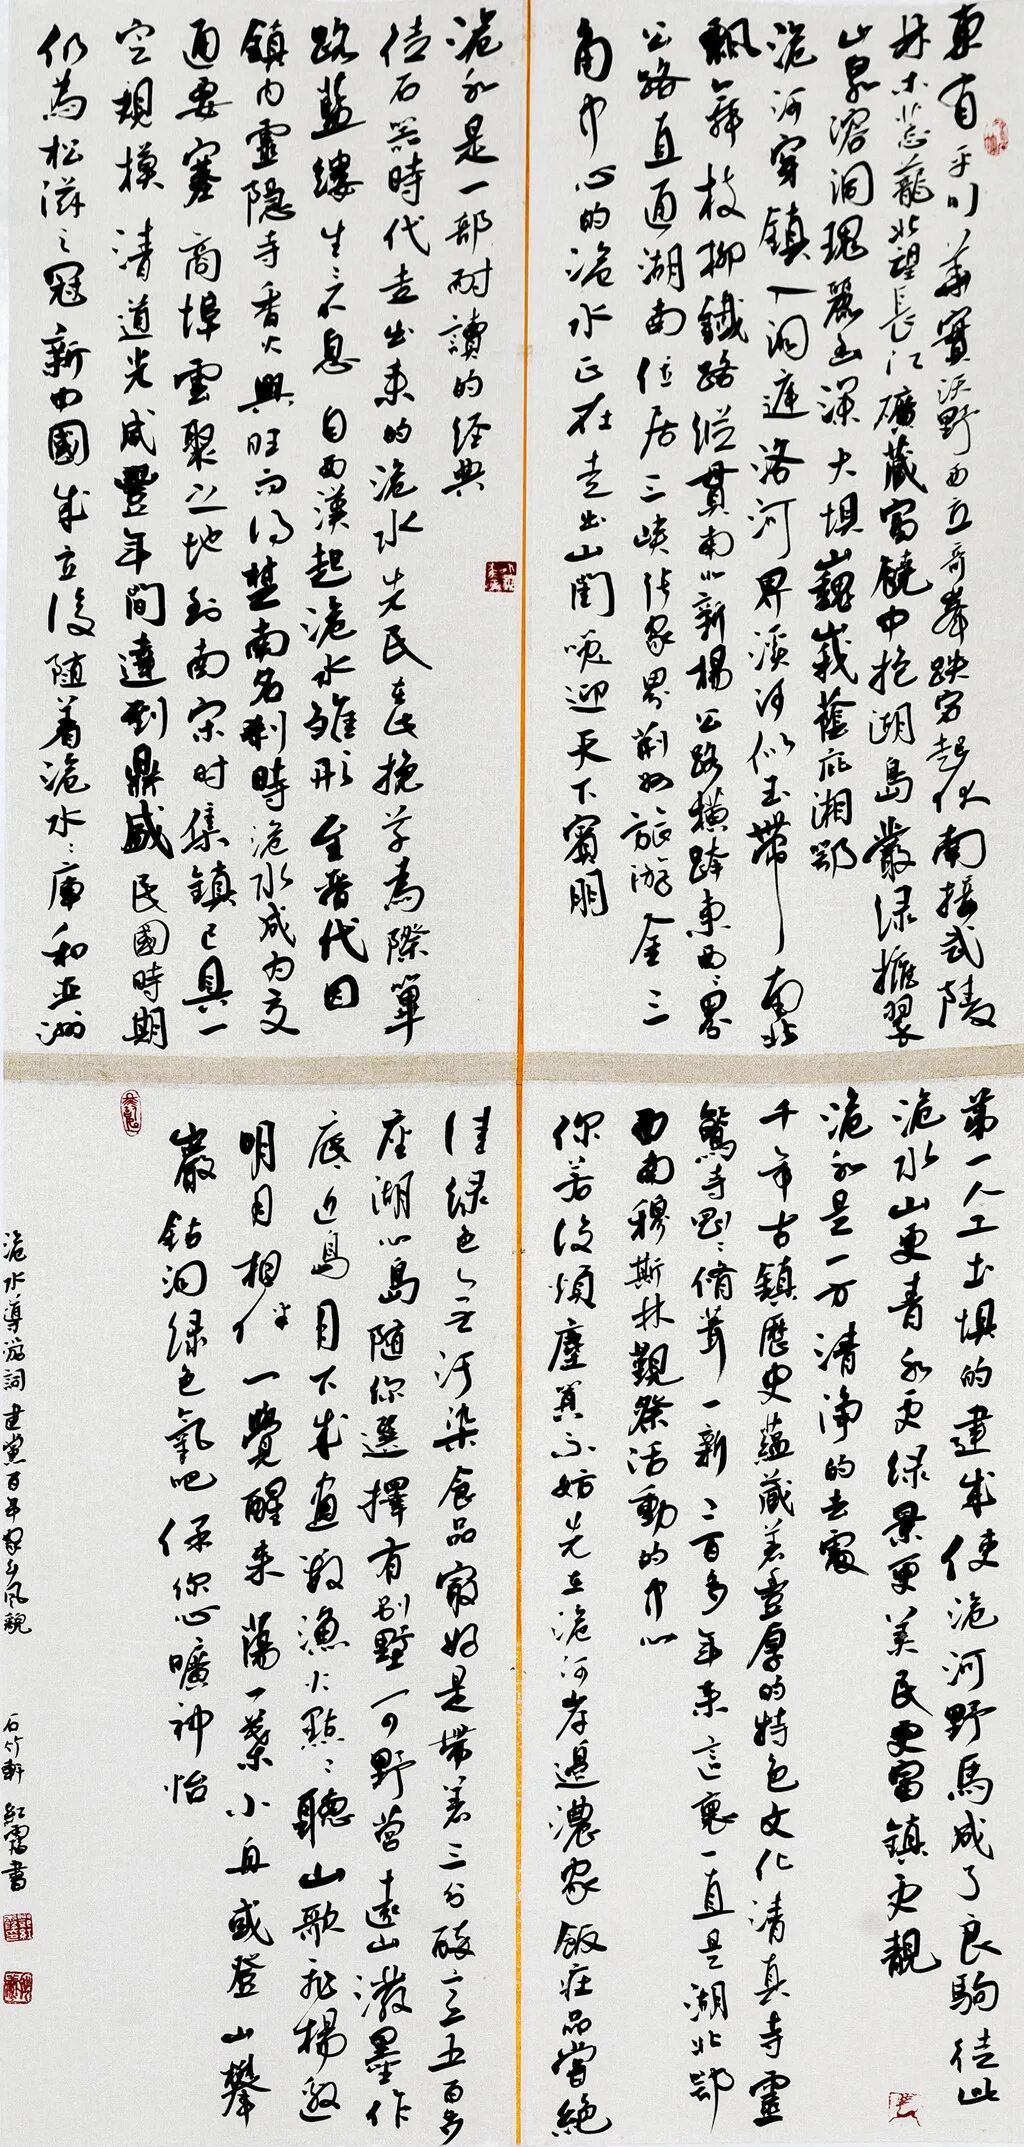 東有平川華實沃野西立奇峯跌宕起伏南接武陵
林木葱蘢北望長江礦藏富饒中抱湖島叢绿擁翠
山泉溶洞瑰麗幽深大壩巍峩蔭庇湘鄂
洈河穿鎮入洞庭洛河界溪河似玉帶一南北
飄舞枝柳鐵路纵貫南北新楊公路横跨東西〻界
公路直通湖南位居三峡张家界荆州旅游金三
角中心的洈水正在走出山閨喚迎天下賓朋
洈水是一部耐讀的经典
從石器時代走出来的洈水先民在此挽草為際篳
路藍縷生生不息自西漢起洈水雏形至晋代因
鎮内靈隐寺香火興旺而得楚南名刹時洈水成为交
通要塞商埠雲聚之地到南宋时集鎮已具一
空規模清道光咸豐年間達到鼎盛民國時期
仍為松滋之冠新中國成立後随着洈水〻庫和亚洲
第一人工土壩的建成使洈河野馬成了良駒從此
洈水山更青水更绿景更美民更富鎮更靓
洈水是一方清净的去處
千年古鎮歷史蕴藏着豐厚的特色文化清真寺靈
鷲寺剛〻脩葺一新二百多年来這裏一直是湖北鄂
西南穆斯林觐祭活動的中心
你若没煩塵其不妨先在洈河岸邊農家飯莊品嘗絶
佳绿色〻无污染食品最好是带着三分醉意五百多
座湖心島随你選擇有别墅一可野营遠山潑墨作
底近島月下成画数漁火點〻聽山歌飛揚邀
明月相伴一覺醒来蕩一葉小舟或登山攀
巖鉆洞绿色氧吧保您心曠神怡
洈水導游詞建黨百年家乡风貌 石竹軒 紅霞書